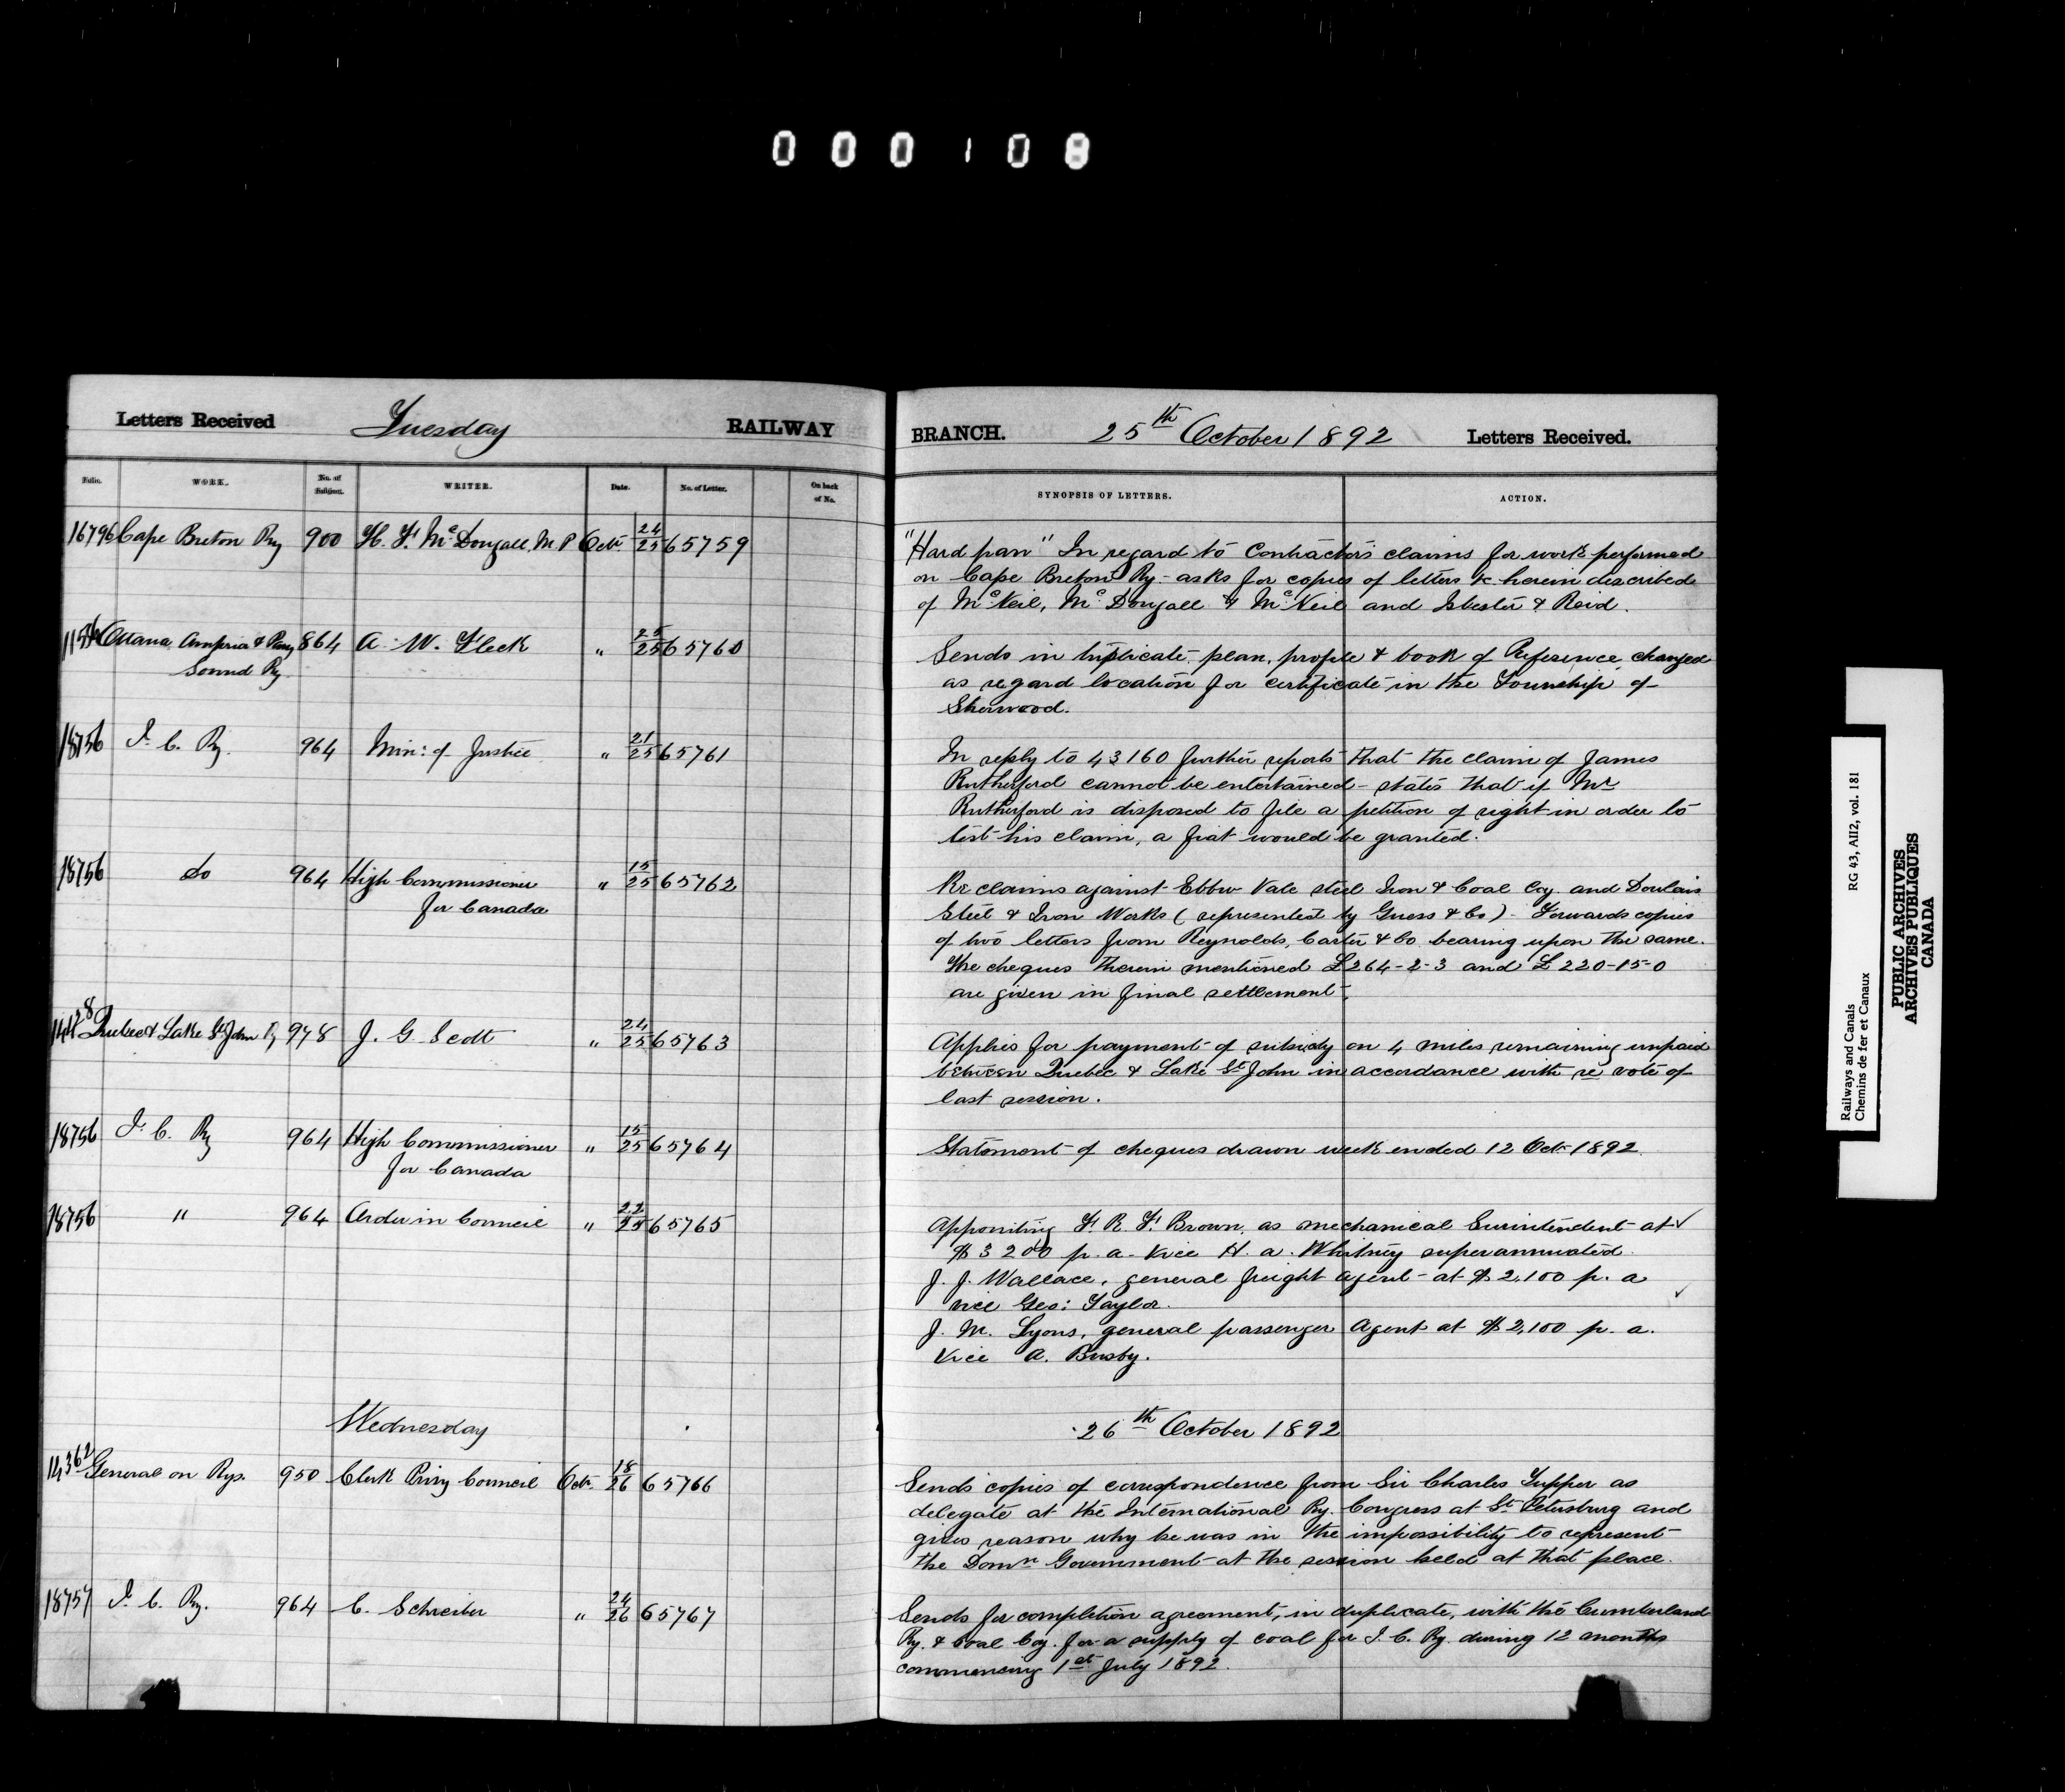 000108
Letters Received Tuesday RAILWAY BRANCH. 25th October 1892 Letters Received.
Folio. WORK. No. of Subject. WRITER. Date. No. of Letter. On back of No. SYNOPSIS OF LETTERS. ACTION.
16796 Cape Breton Ry 900 H. F. McDougall, M P Octr 24/25 65759
"Hard pan" In regard to Contractors claims for work performed
on Cape Breton Ry - asks for copies of letters &c herein described
of McNeil, McDougall & McNeil and Isbester & Reid.
Ottawa Arnprior & Parry 864 A. W. Fleck " 25/25 65760
Sound Ry.
Sends in triplicate, plan, profile & book of Reference, changed
as regard location for certificate in the Township of
Sherwood.
18756 I. C. Ry. 964 Min: of Justice " 21/25 65761
In reply to 43160 further reports that the claim of James
Rutherford cannot be entertained - states that if Mr
Rutherford is disposed to file a petition of right in order to
test his claim, a fiat would be granted.
18756 do 964 High Commissioner " 15/25 65762
for Canada
Re claims against Ebbw Vale steel Iron & Coal Coy. and Dowlais
Steel & Iron Works (represented by Guess & Co) - Forwards copies
of two letters from Reynolds, Carter & Co bearing upon the same.
The cheques therein mentioned £264-2-3 and £220-15-0
are given in final settlement.
Quebec & Lake St John Ry 978 J. G. Scott " 24/25 65763
Applies for payment of subsidy on 4 miles remaining unpaid
between Quebec & Lake St John in accordance with re vote of
last session.
18756 I. C. Ry 964 High Commissioner " 15/25 65764
for Canada
Statement of cheques drawn week ended 12 Oct 1892
18756 " 964 Order in Council " 22/25 65765
Appointing F. R. F. Brown, as mechanical Surintendent at ✓
$3200 p. a. vice H. A. Whitney superannuated.
J. J. Wallace, general freight agent at $2,100 p. a
vice Geo: Taylor. ✓
J. M. Lyons, general passenger Agent at $2,100 p. a.
Vice A. Busby.
Wednesday 26th October 1892
14362 General on Rys. 950 Clerk Privy Council Octr 18/26 65766
Sends copies of correspondence from Sir Charles Tupper as
delegate at the International Ry. Congress at St Petersburg and
gives reason why he was in the impossibility to represent
the Domn Government at the session held at that place.
18757 I. C. Ry. 964 C. Schreiber " 24/26 65767
Sends for completion agreement, in duplicate, with the Cumberland
Ry. & Coal Coy. for a supply of coal for I. C. Ry. during 12 months
commencing 1st July 1892.
Railways and Canals RG 43, AII2, vol. 181
Chemins de fer et Canaux
PUBLIC ARCHIVES
ARCHIVES PUBLIQUES
CANADA